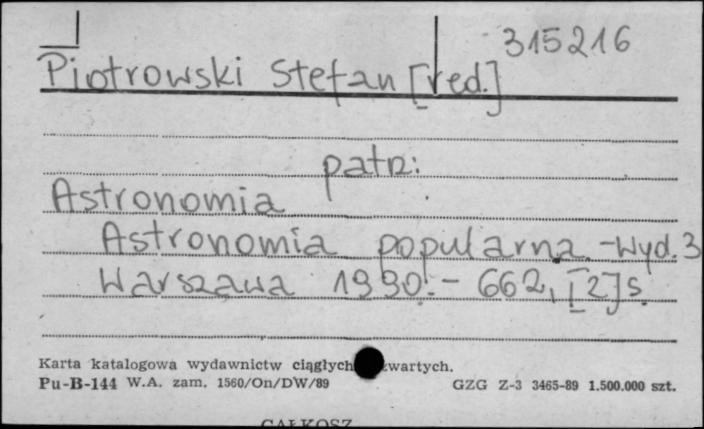 315216
Piotrowski Stefan [red.]
patrz:
Astronomia
Astronomia popularna.-Wyd.3
Warszawa 1990.- 662, [2] s.
Karta katalogowa wydawnictw ciągłych
Pu-B-144 W.A. zam. 1560/On/DW/89 GZG Z-3 3465-89 1.500.000 szt.